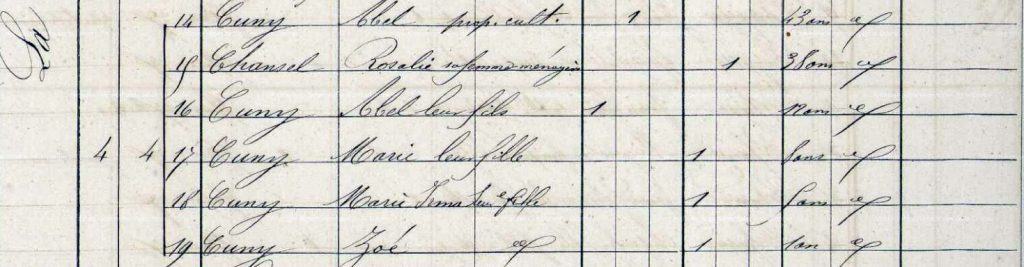 La
14 Cuny Abel prop. cult. 1 43 ans
15 Chansel Rosalie sa femme ménagère 1 38 ans
16 Cuny Abel leur fils 1 12 ans
4 4 17 Cuny Marie leur fille 1 8 ans
18 Cuny Marie Irma leur fille 1 5 ans
19 Cuny Zoé 1 1 an